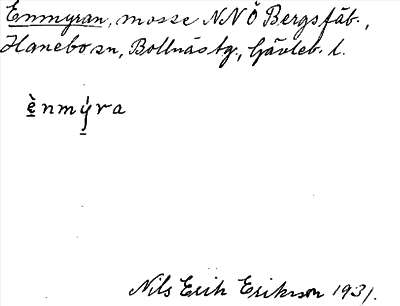 Enmyran, mosse NNÖ Bergsfäb.,
Hanebo sn, Bollnäs tg., Gävleb. l.
ènmýra
Nils Erik Erikson 1931.